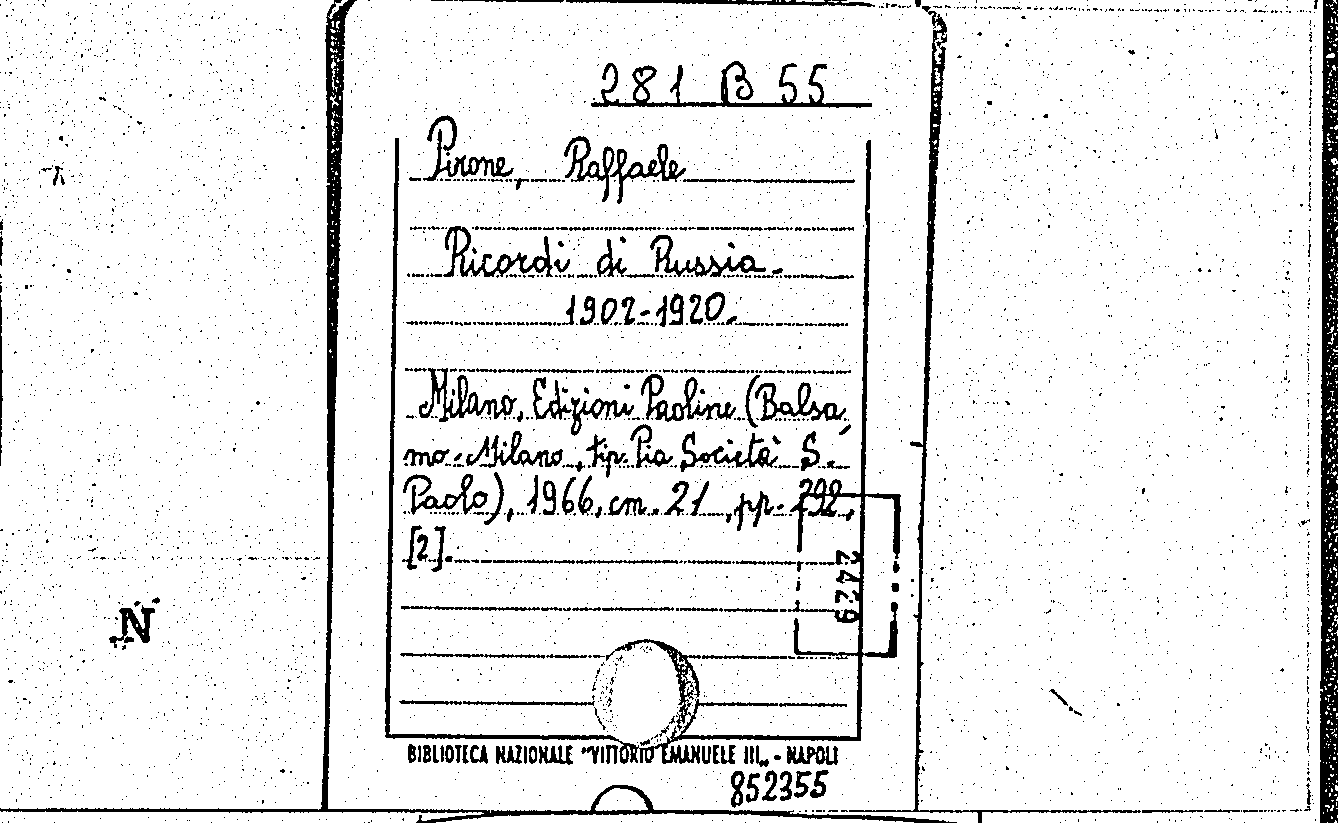 281 B 55
Pirone, Raffaele
Ricordi di Russia.
1902-1920.
Milano, Edizioni Paoline (Balsa,
mo-Milano, tip. Pia Società S.
Paolo), 1966, cm. 21, pp. 298,
[2].
2429
N
BIBLIOTECA NAZIONALE "VITTORIO EMANUELE III„ - NAPOLI
852355